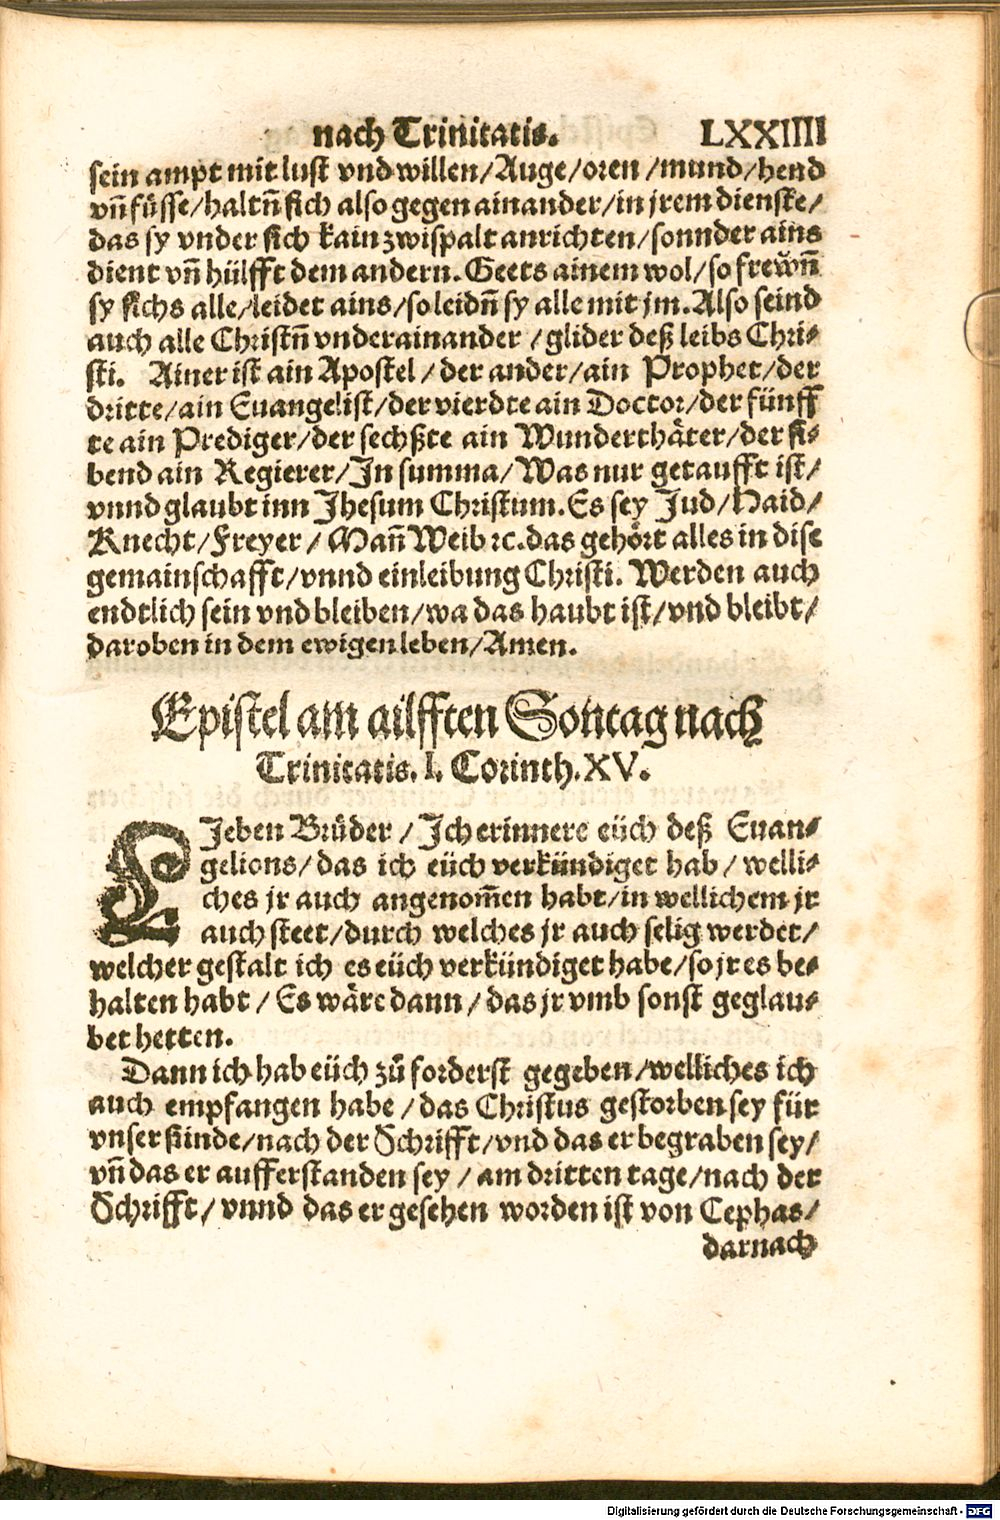 nach Trinitatis. LXXIIII
sein ampt mit lust vnd willen/Auge/oren/mund/hend
vñ füsse/haltñ sich also gegen ainander/in jrem dienste/
das sy vnder sich kain zwispalt anrichten/sonnder ains
dient vñ hülfft dem andern. Geets ainem wol/so frewñ
sy sichs alle/leidet ains/so leidñ sy alle mit jm. Also seind
auch alle Christñ vnderainander/glider deß leibs Chri⸗
sti. Ainer ist ain Apostel/der ander/ain Prophet/der
dritte/ain Euangelist/der vierdte ain Doctor/der fünff
te ain Prediger/der sechßte ain Wunderthäter/der si⸗
bend ain Regierer/In summa/Was nur getaufft ist/
vnnd glaubt inn Jhesum Christum. Es sey Jud/Haid/
Knecht/Freyer/Mañ Weib ꝛc. das gehört alles in dise
gemainschafft/vnnd einleibung Christi. Werden auch
endtlich sein vnd bleiben/wa das haubt ist/vnd bleibt/
daroben in dem ewigen leben/Amen.
Epistel am ailfften Sontag nach
Trinitatis. I. Corinth. XV.
LJeben Brüder/Ich erinnere eüch deß Euan⸗
gelions/das ich eüch verkündiget hab/welli⸗
ches jr auch angenom̃en habt/in wellichem jr
auch steet/durch welches jr auch selig werdet/
welcher gestalt ich es eüch verkündiget habe/so jr es be⸗
halten habt/Es wäre dann/das jr vmb sonst geglau⸗
bet hetten.
Dann ich hab eüch zů forderst gegeben/welliches ich
auch empfangen habe/das Christus gestorben sey für
vnser sünde/nach der Schrifft/vnd das er begraben sey/
vñ das er aufferstanden sey/am dritten tage/nach der
Schrifft/vnnd das er gesehen worden ist von Cephas/
darnach
Digitalisierung gefördert durch die Deutsche Forschungsgemeinschaft - DFG